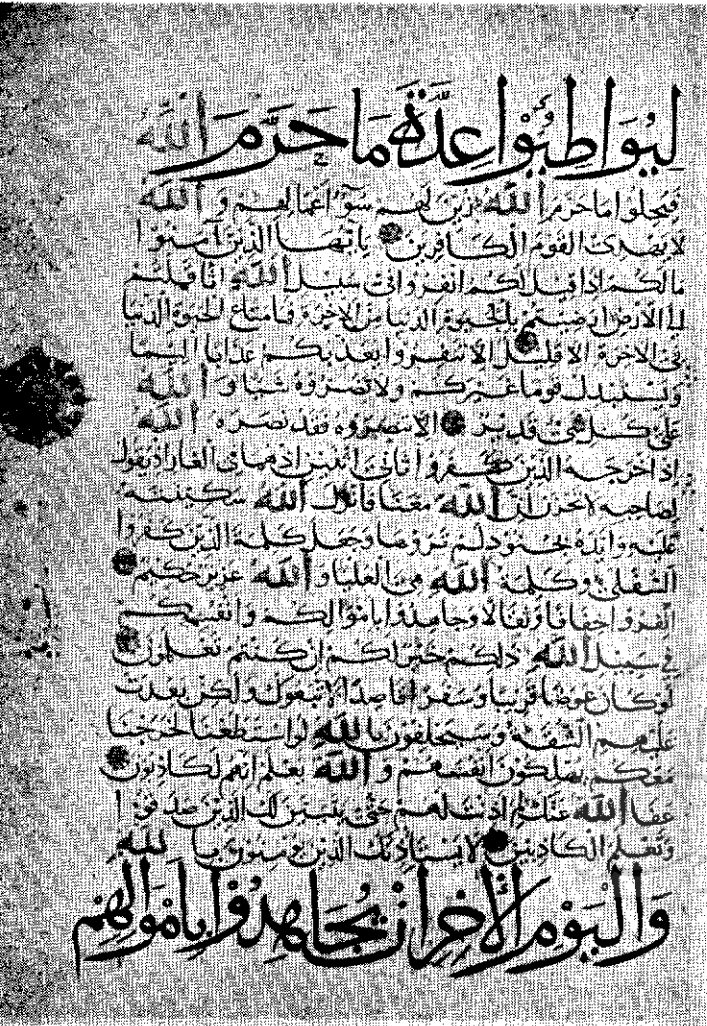 ليواطئوا عدة ما حرم الله
فيحلوا ما حرم الله زين لهم سوء اعمالهم و الله
لا يهدى القوم الكافرين يا ايها الذين امنوا
ما لكم اذا قيل لكم انفروا فى سبيل الله اثاقلتم
الى الارض ارضيتم بالحيوة الدنيا من الاخرة فما متاع الحيوة الدنيا
فى الاخرة الا قليل الا تنفروا يعذبكم عذابا اليما
ويستبدل قوما غيركم ولا تضروه شيا و الله
على كل شئ قدير الا تنصروه فقد نصره الله
اذ اخرجه الذين كفروا ثانى اثنين اذ هما فى الغار اذ يقول
لصاحبه لا تحزن ان الله معنا فانزل الله سكينته
عليه وايده بجنود لم تروها وجعل كلمة الذين كفروا
السفلى وكلمة الله هى العليا و الله عزيز حكيم
انفروا خفافا وثقالا وجاهدوا باموالكم وانفسكم
فى سبيل الله ذلكم خير لكم ان كنتم تعلمون
لو كان عرضا قريبا وسفرا قاصدا لاتبعوك ولكن بعدت
عليهم الشقة وسيحلفون بالله لو استطعنا لخرجنا
معكم يهلكون انفسهم و الله يعلم انهم لكاذبون
عفا الله عنك لم اذنت لهم حتى يتبين لك الذين صدقوا
وتعلم الكاذبين لا يستاذنك الذين يؤمنون بالله
وَالْيَوْمِ الْاخِرِ انْ يُجَاهِدُوْا بِاَمْوَالِهِم